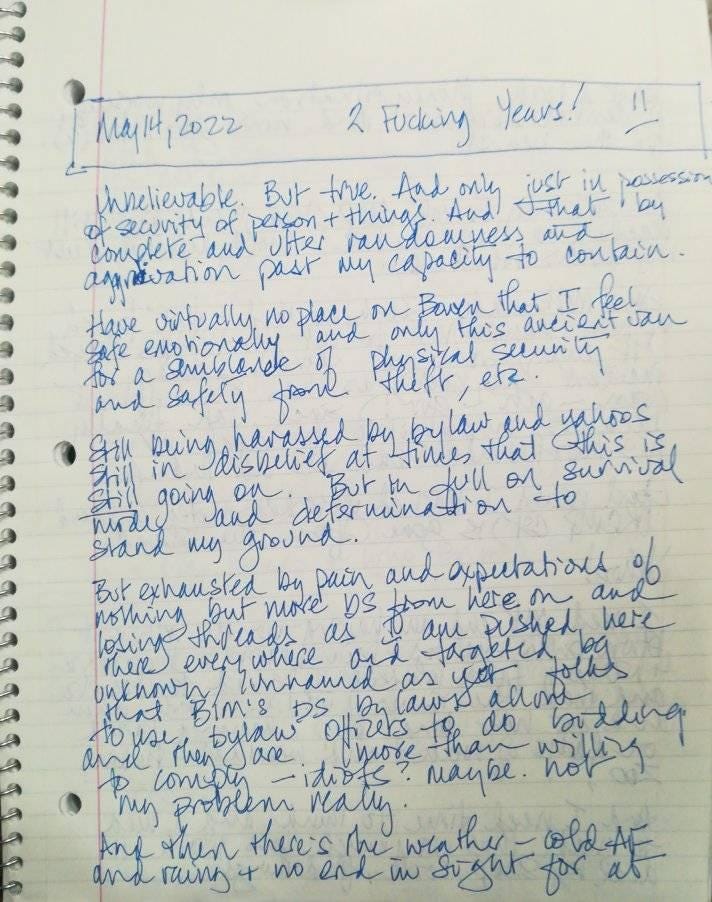 May 14, 2022 2 Fucking Years! !!
Unbelievable. But true. And only just in possession
of security of person + things. And that by
complete and utter randomness and
aggrivation past my capacity to contain.
Have virtually no place on Bowen that I feel
safe emotionally and only this ancient van
for a semblance of physical security
and safety from theft, etc.
Still being harassed by bylaw and yahoos
Still in disbelief at times that this is
Still going on. But in full on survival
mode and determination to
stand my ground.
But exhausted by pain and expectations of
nothing but more BS from here on and
losing threads as I am pushed here
there everywhere and targeted by
unknown/unnamed as yet folks
that BIM's BS bylaws allow
to use bylaw officers to do bidding
and they are more than willing
to comply – idiots? maybe. not
my problem really.
And then there's the weather – cold AF
and rainy + no end in sight for at